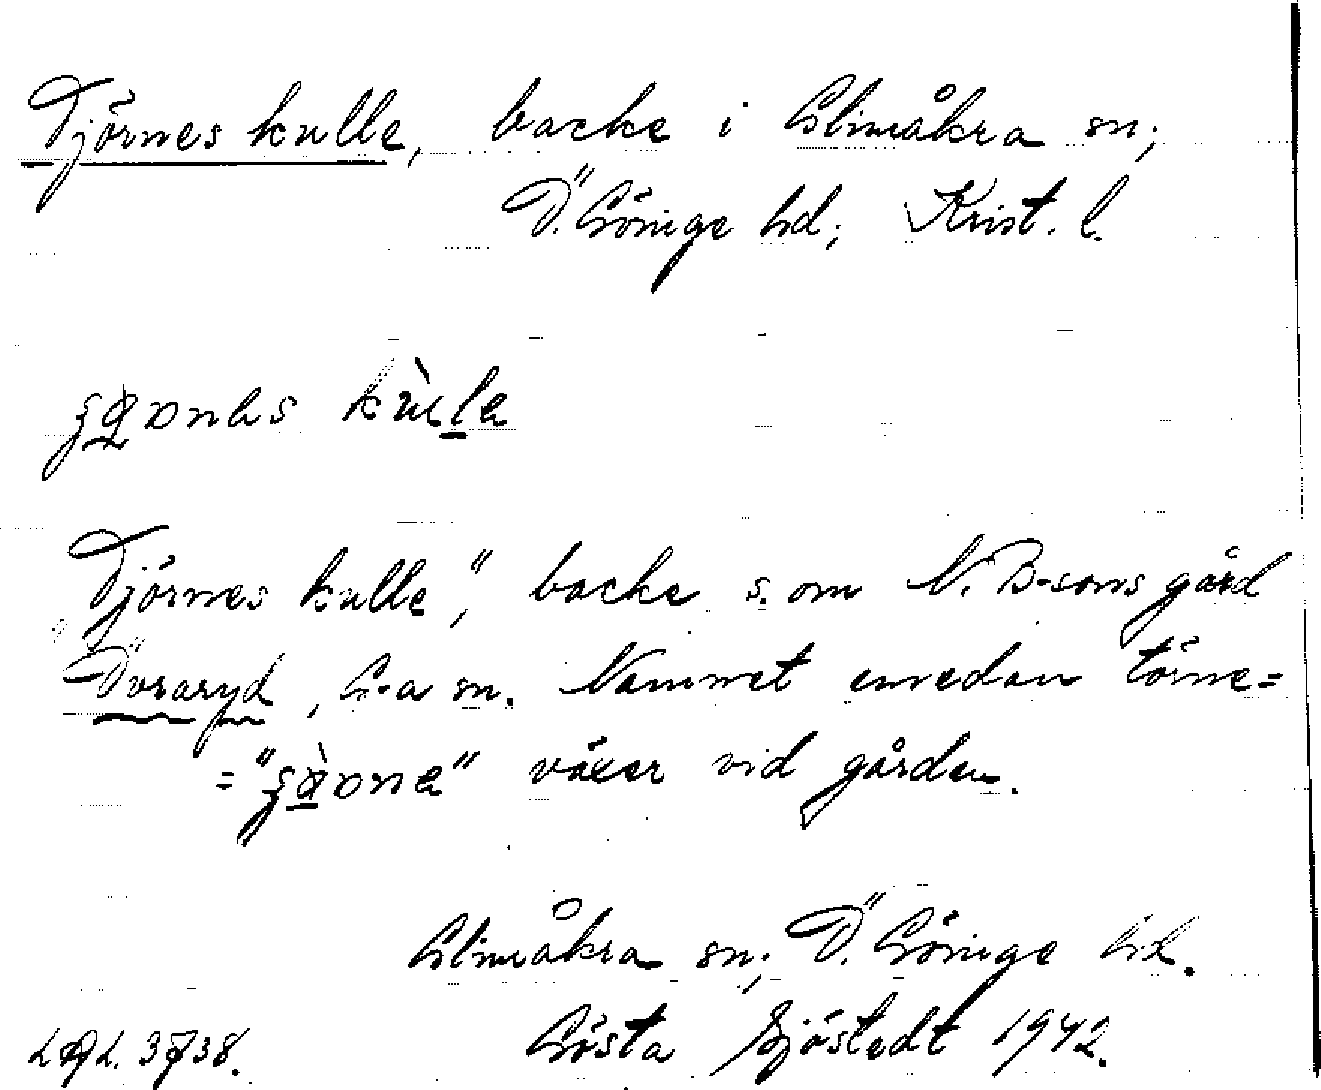 Tjörnes kulle, backe i Glimåkra sn;
Ö. Göinge hd; Krist. l.
kùle
Tjörnes kulle", backe s. om N. B-sons gård
Övraryd, G-a sn. Namnet emedan törne=
= växer vid gården.
Glimåkra sn; Ö. Göinge hd.
Gösta Sjöstedt 1942.